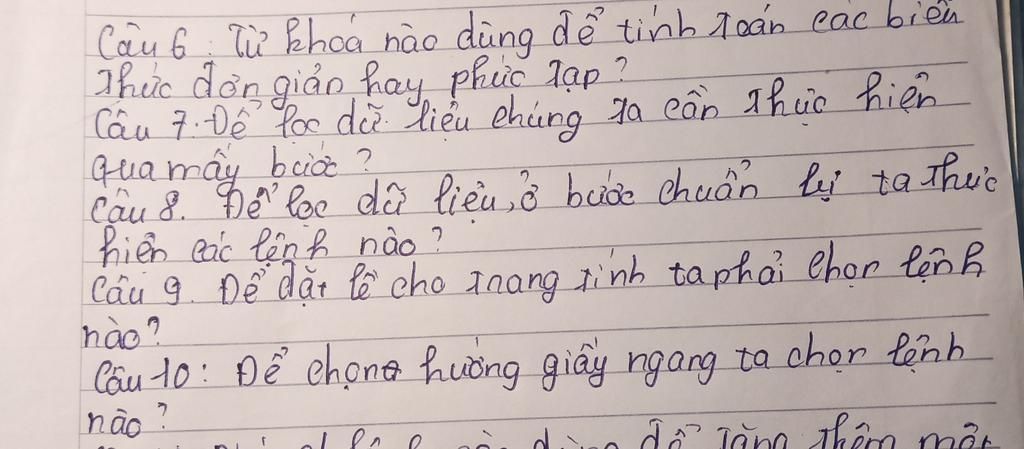 Câu 6: Từ khoá nào dùng để tính toán các biểu
thức đơn giản hay phức tạp?
Câu 7: Để lọc dữ liệu chúng ta cần thực hiện
qua mấy bước?
Câu 8. Để lọc dữ liệu, ở bước chuẩn bị ta thực
hiện các lệnh nào?
Câu 9. Để đặt lề cho trang tính ta phải chọn lệnh
nào?
Câu 10: Để chọn hướng giấy ngang ta chọn lệnh
nào?
dùng để tăng thêm một